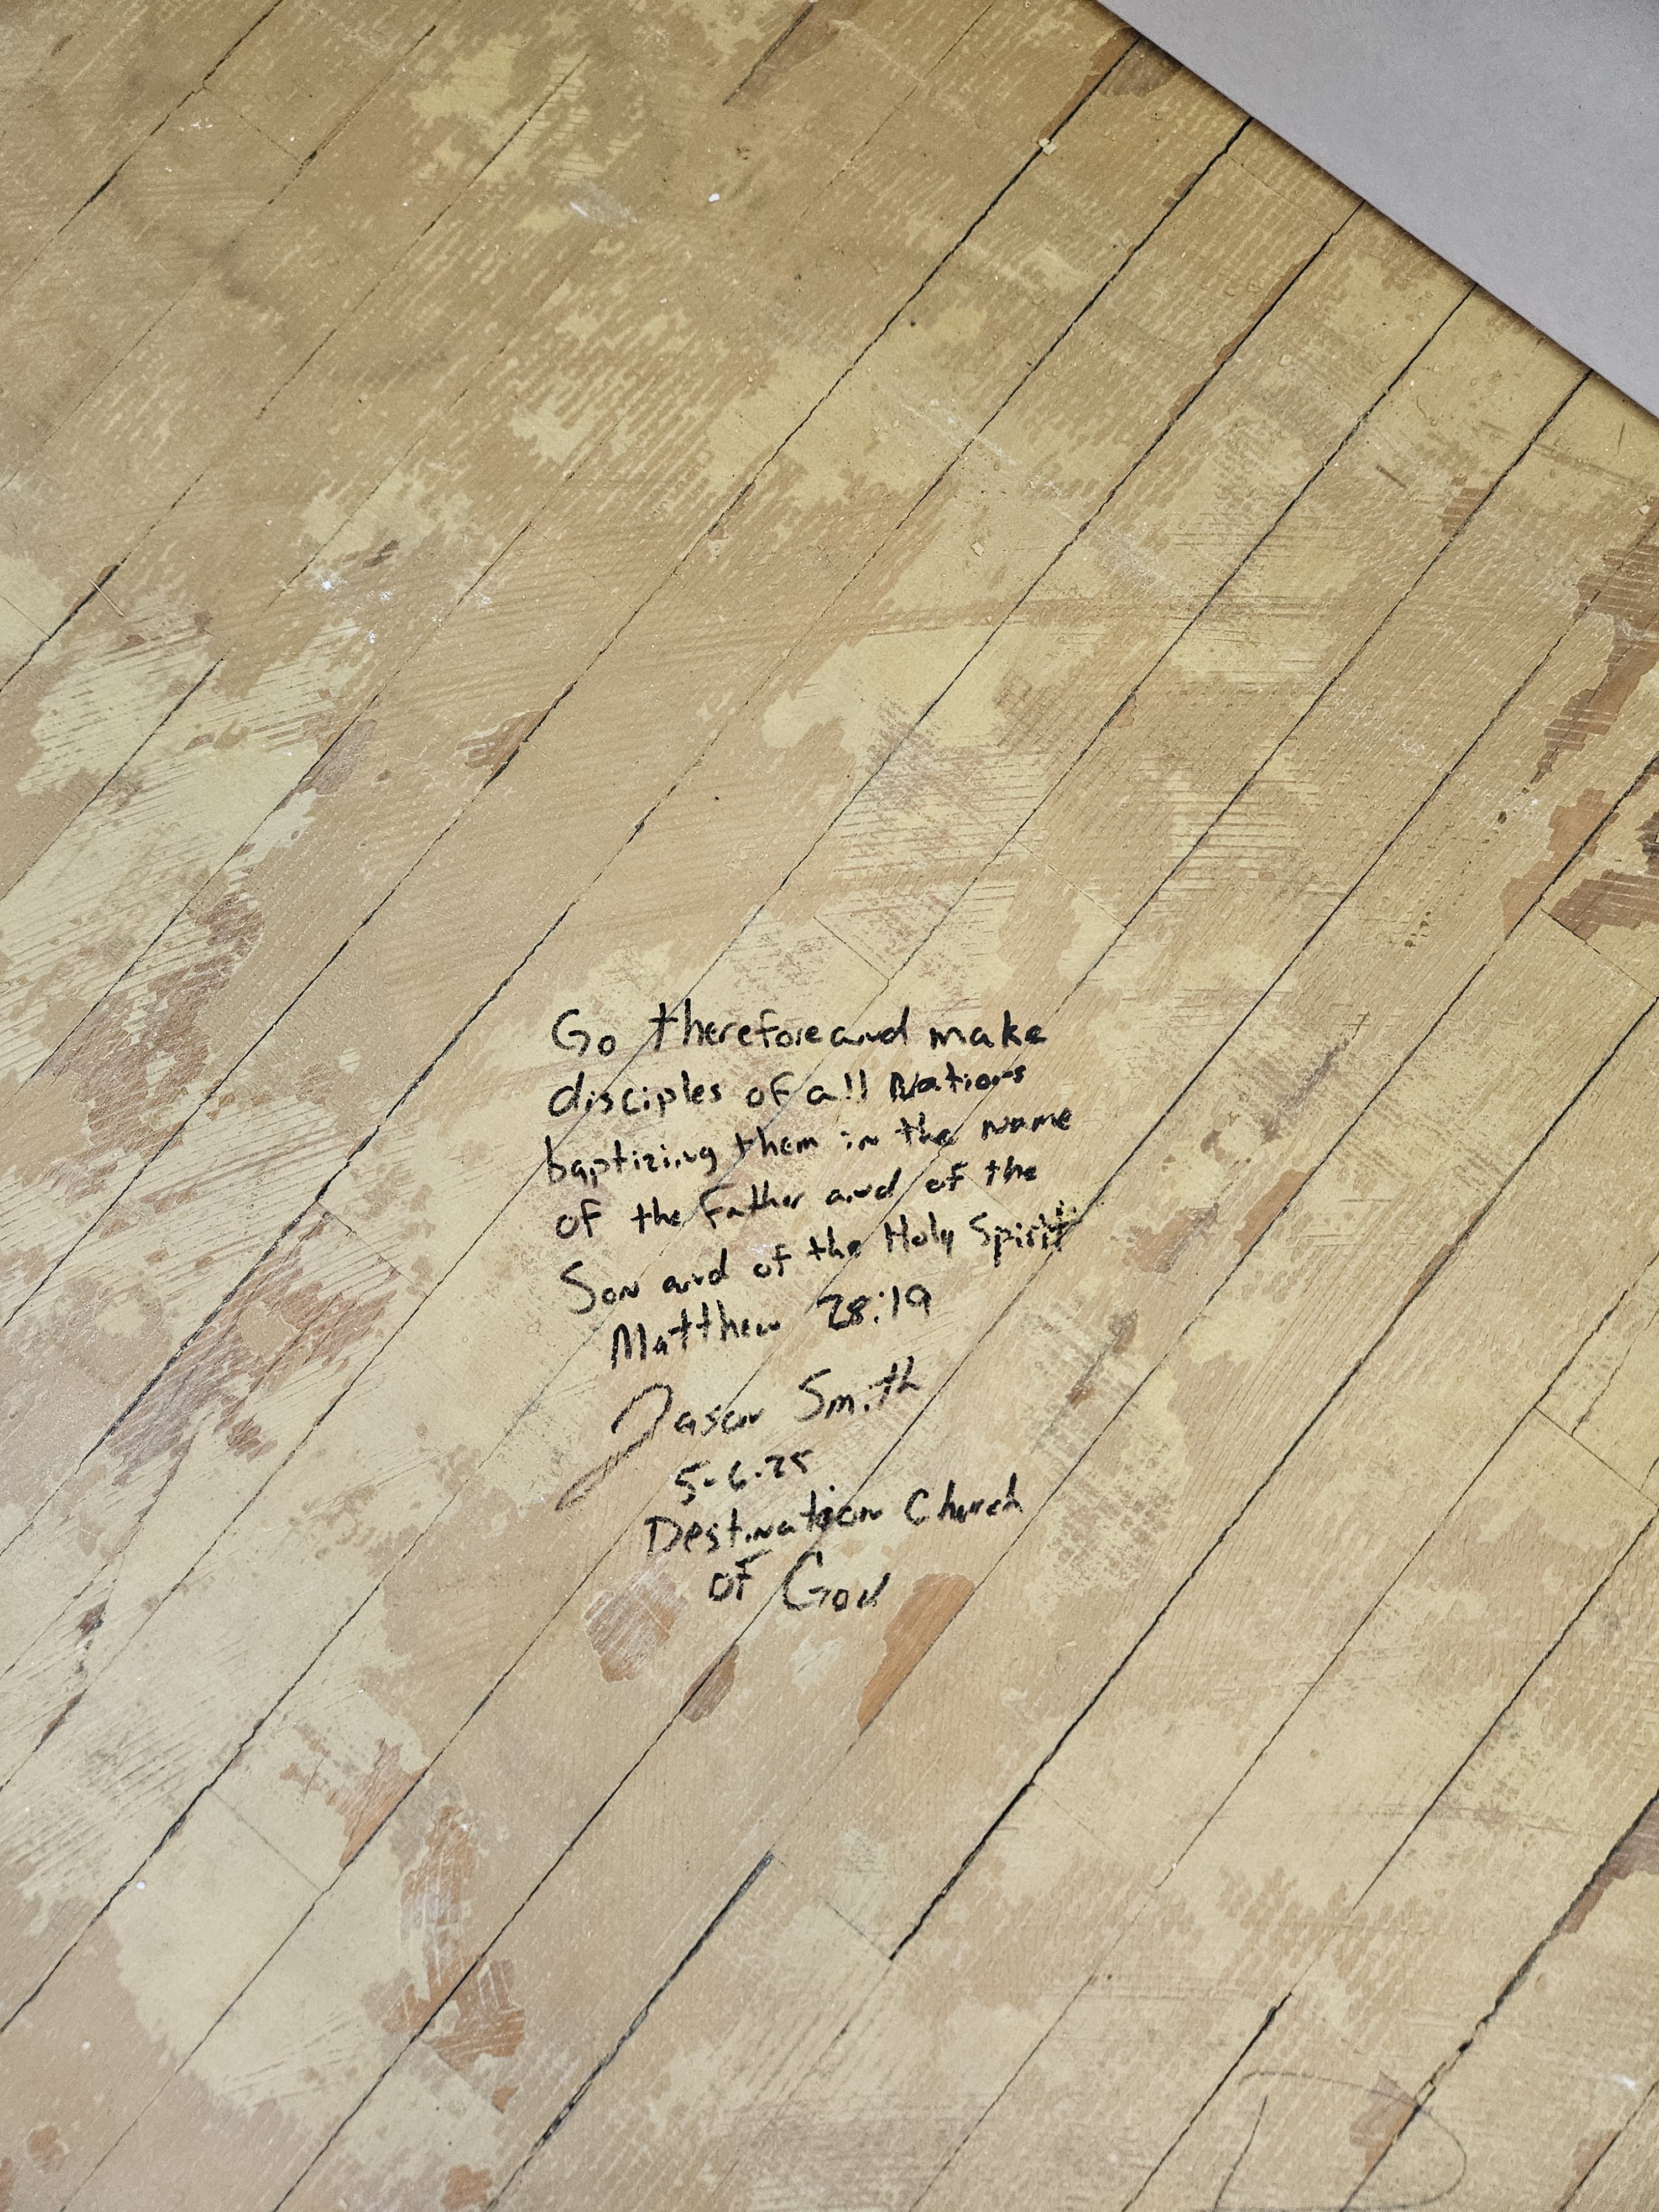 Go therefore and make
disciples of all Nations
baptizing them in the name
of the Father and of the
Son and of the Holy Spirit
Matthew 28:19
Jason Smith
5-6-25
Destination Church
of God